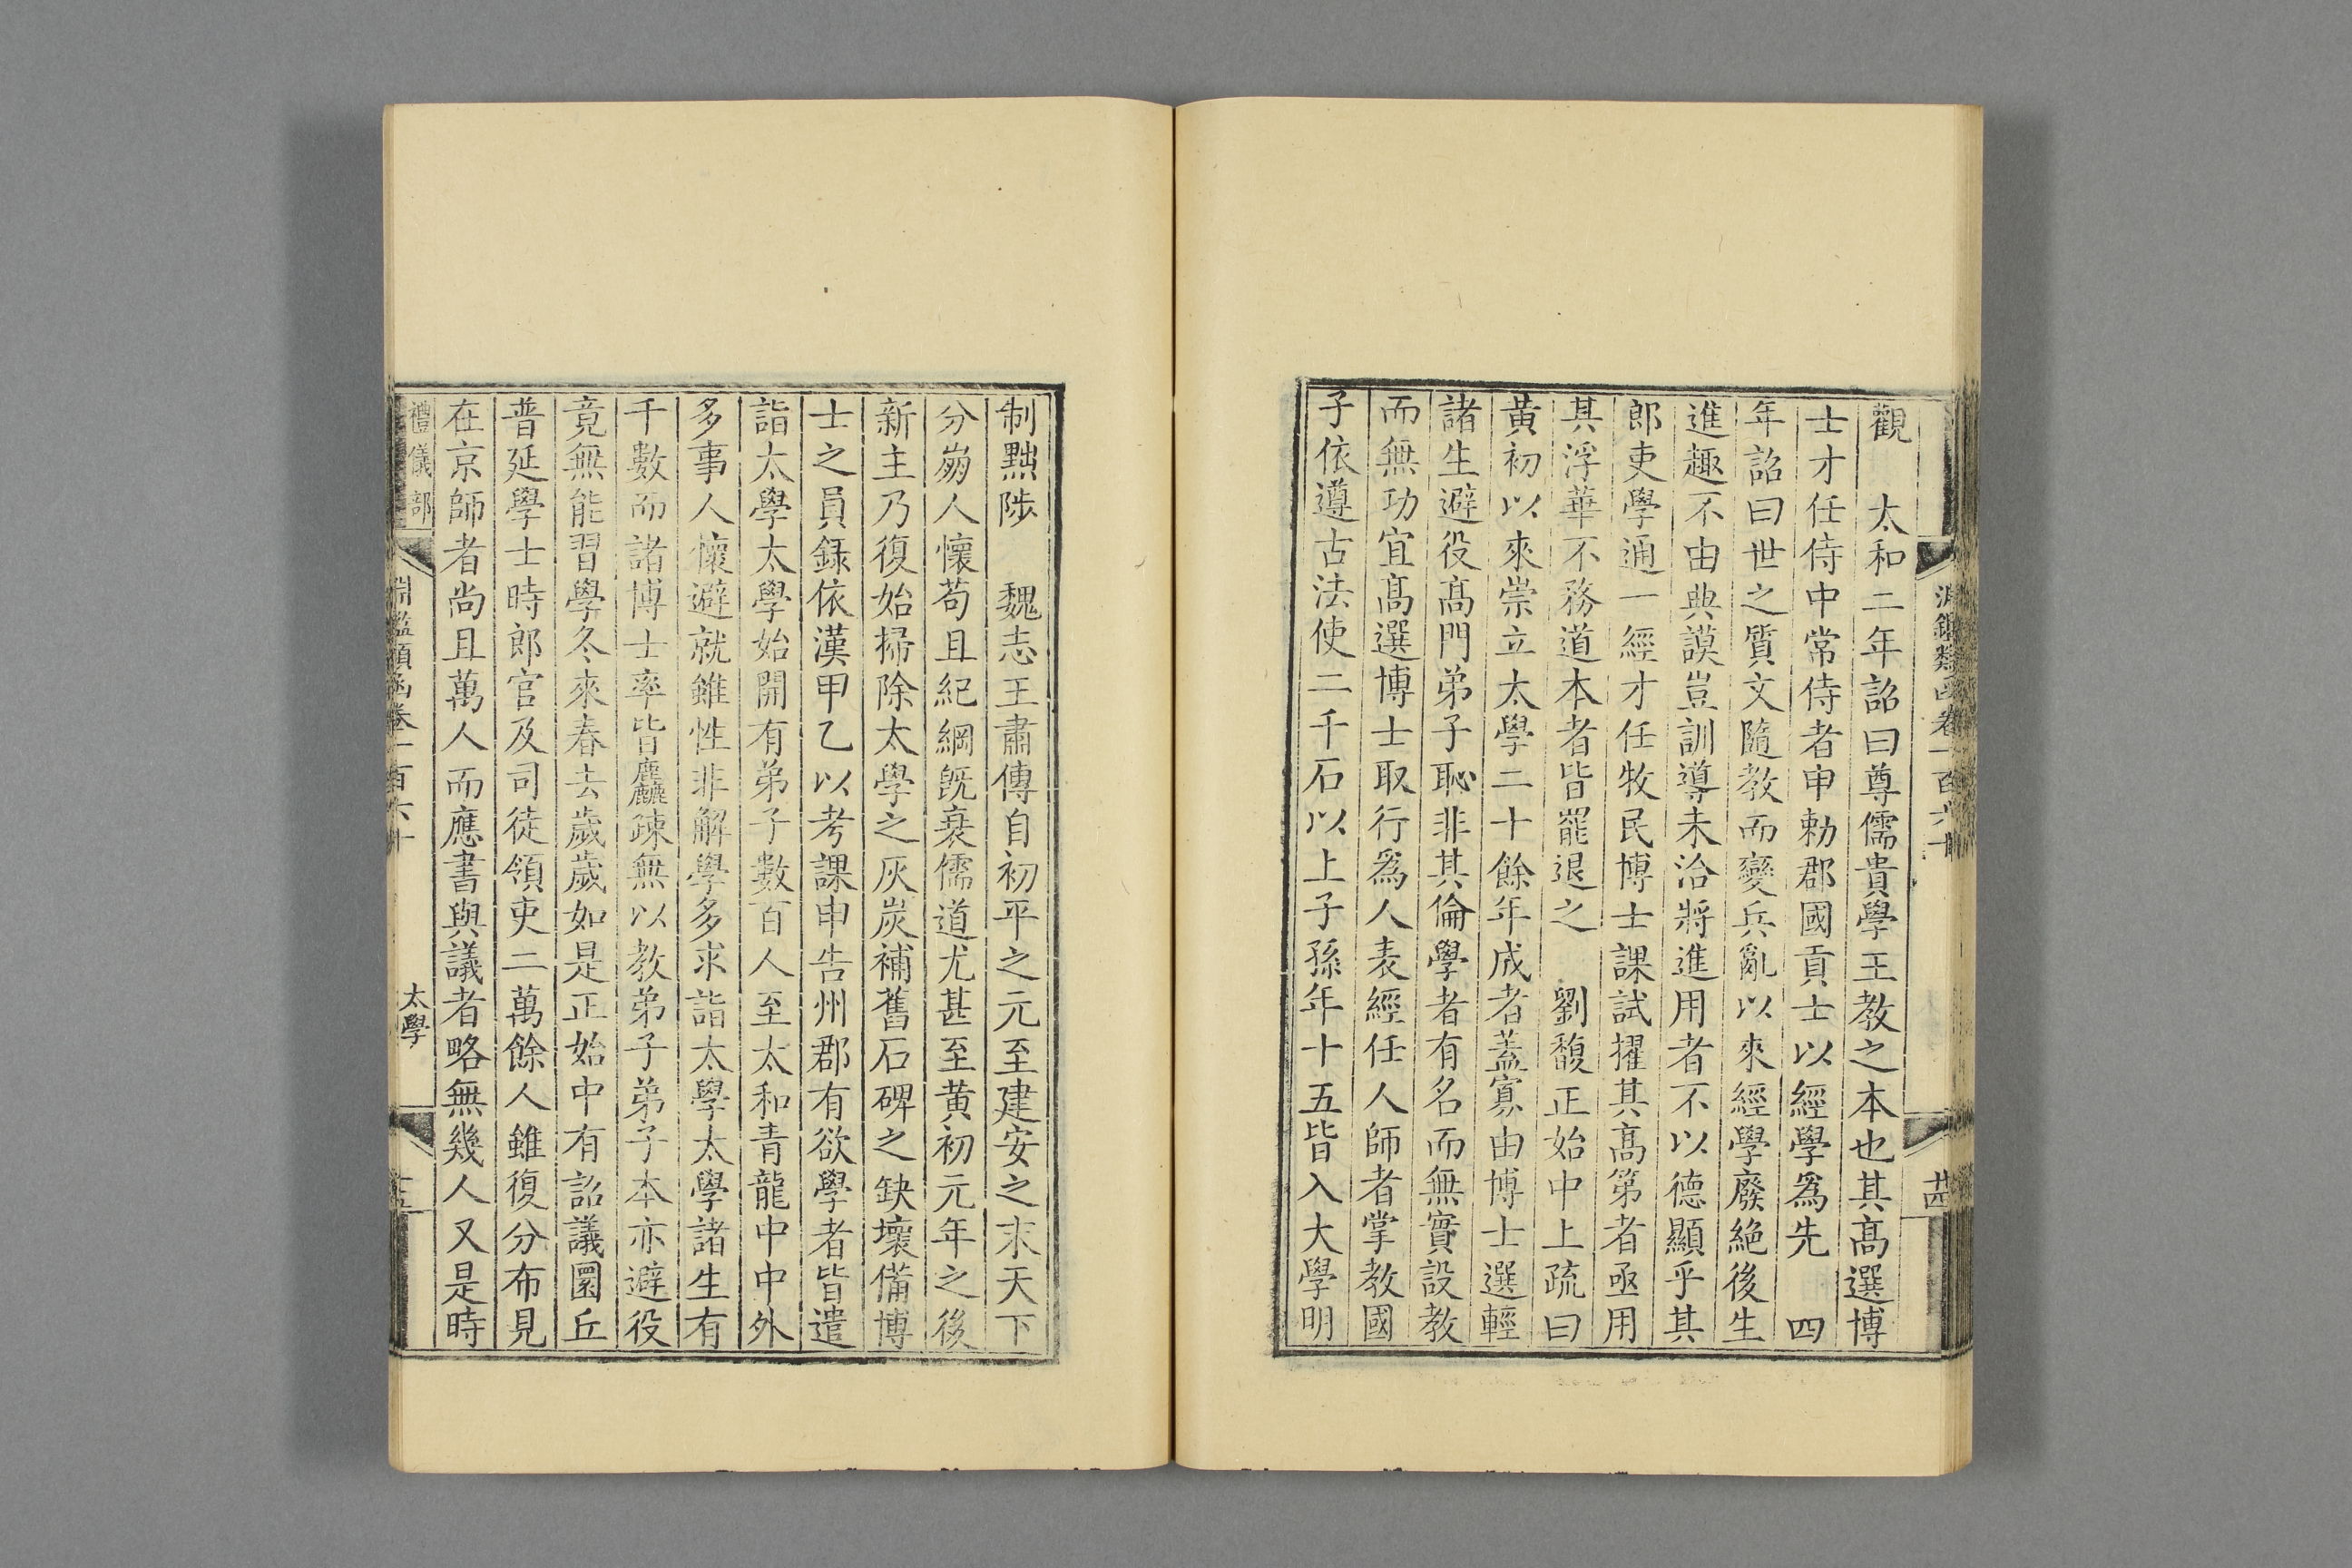 淵鑑類函卷一百六十
廿四
觀　太和二年詔曰尊儒貴學王教之本也其髙選博
士才任侍中常侍者申勅郡國貢士以經學爲先　四
年詔曰世之質文隨教而變兵亂以來經學廢絶後生
進趣不由典謨豈訓導未洽將進用者不以德顯乎其
郎吏學通一經才任牧民博士課試擢其髙第者亟用
其浮華不務道本者皆罷退之　劉馥正始中上疏曰
黃初以來崇立太學二十餘年成者蓋寡由博士選輕
諸生避役髙門弟子恥非其倫學者有名而無實設教
而無功宜髙選博士取行爲人表經任人師者掌教國
子依遵古法使二千石以上子孫年十五皆入大學明
制黜陟　魏志王肅傳自初平之元至建安之末天下
分崩人懷苟且紀綱旣衰儒道尤甚至黄初元年之後
新主乃復始掃除太學之灰炭補舊石碑之缺壞備博
士之員録依漢甲乙以考課申告州郡有欲學者皆遣
詣太學太學始開有弟子數百人至太和青龍中中外
多事人懷避就雖性非解學多求詣太學太學諸生有
千數而諸博士率皆麤疎無以教弟子弟子本亦避役
竟無能習學冬來春去歲歲如是正始中有詔議圜丘
普延學士時郎官及司徒領吏二萬餘人雖復分布見
在京師者尚且萬人而應書與議者略無幾人又是時
禮儀部
淵鑑類函卷一百六十
太學